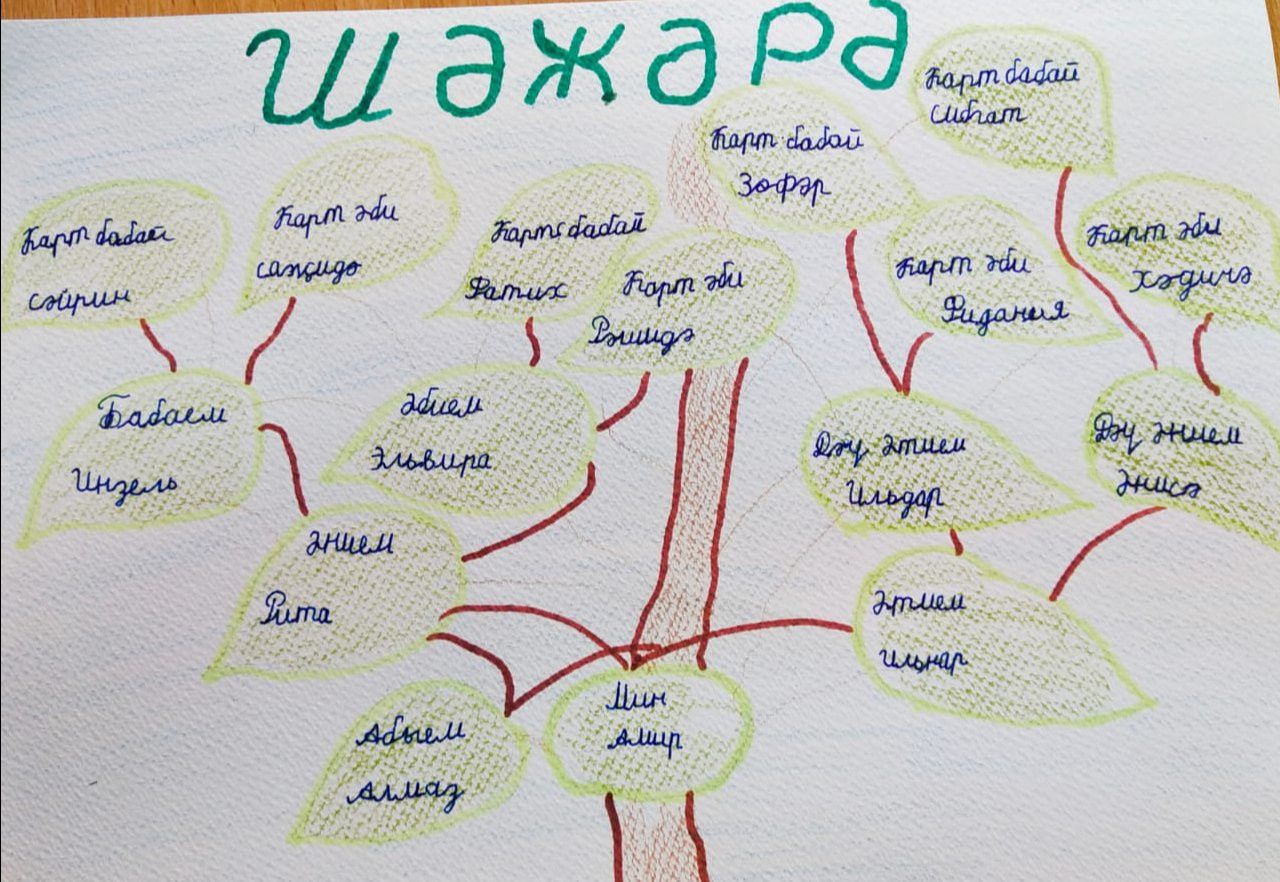 Шәжәрә
Карт бабай
Сибгат
Карт бабай
Зөфәр
Карт бабай
Сәйрин
Карт әби
Сәҗидә
Карт бабай
Фатих
Карт әби
Рәшидә
Карт әби
Фидания
Карт әби
Хәдичә
Бабаем
Инзель
Әбием
Эльвира
Дәү әтием
Ильдар
Дәү әнием
Әнисә
Әнием
Рита
Әтием
Ильнар
Абыем
Алмаз
Мин
Амир